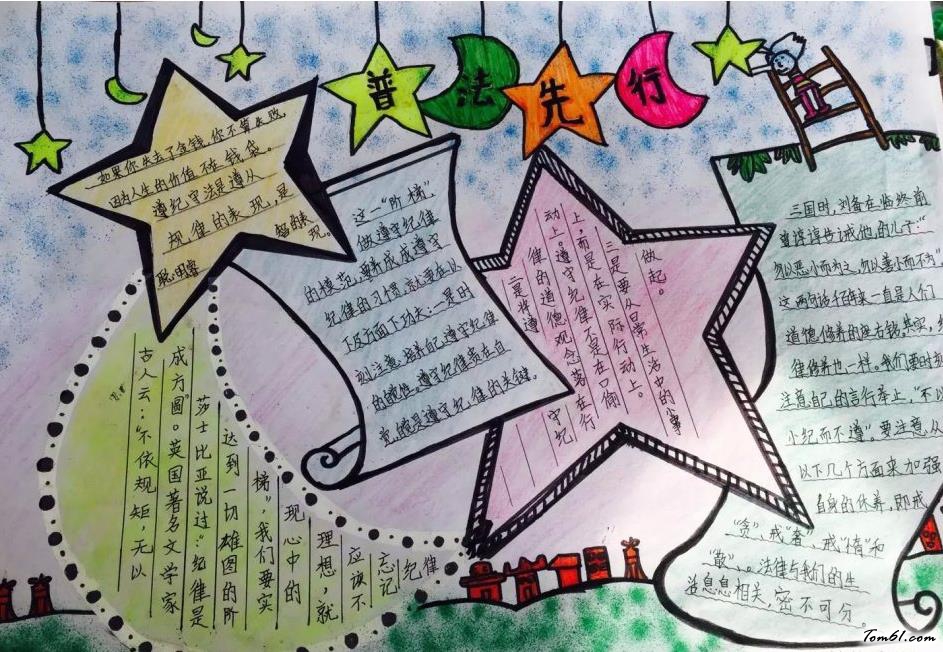 普法先行
如果你失去了金钱,你不算失败,
因为人生的价值不在钱袋。
遵纪守法是遵从
规律的表现,是
聪明睿
智的表
现。
古人云:“不依规矩,无以
成方圆”。英国著名文学家
莎士比亚说过:“纪律是
达到一切雄图的阶
梯”,我们要实
现心中的
理想,就
应该不
忘记
纪律
这一“阶梯”,
做遵守纪律
的模范,要养成遵守
纪律的习惯,就要在以
下几方面下功夫:一是时
刻注意培养自己遵守纪律
的惯性。遵守纪律贵在自
觉,惯是遵守纪律的关键。
二是将遵守纪
律的道德观念落在行
动上。遵守纪律不是在口佣
上,而是在实际行动上。
三是要从日常生活中的小事
做起。
三国时,刘备在临终前
谆谆告诫他的儿子:“
勿以恶小而为之,勿以善小而不为”
这两句话千百年来一直是人们
道德修养的座右铭,其实,
律修养也一样。我们要时刻
注意自己的言行举止,“不以
小纪而不遵”。要注意从
以下几个方面来加强
自身的休养,即戒
“贪”、戒“奢”、戒“惰”和
“散”、。法律与我们的生
活息息相关,密不可分。
Tom61.com